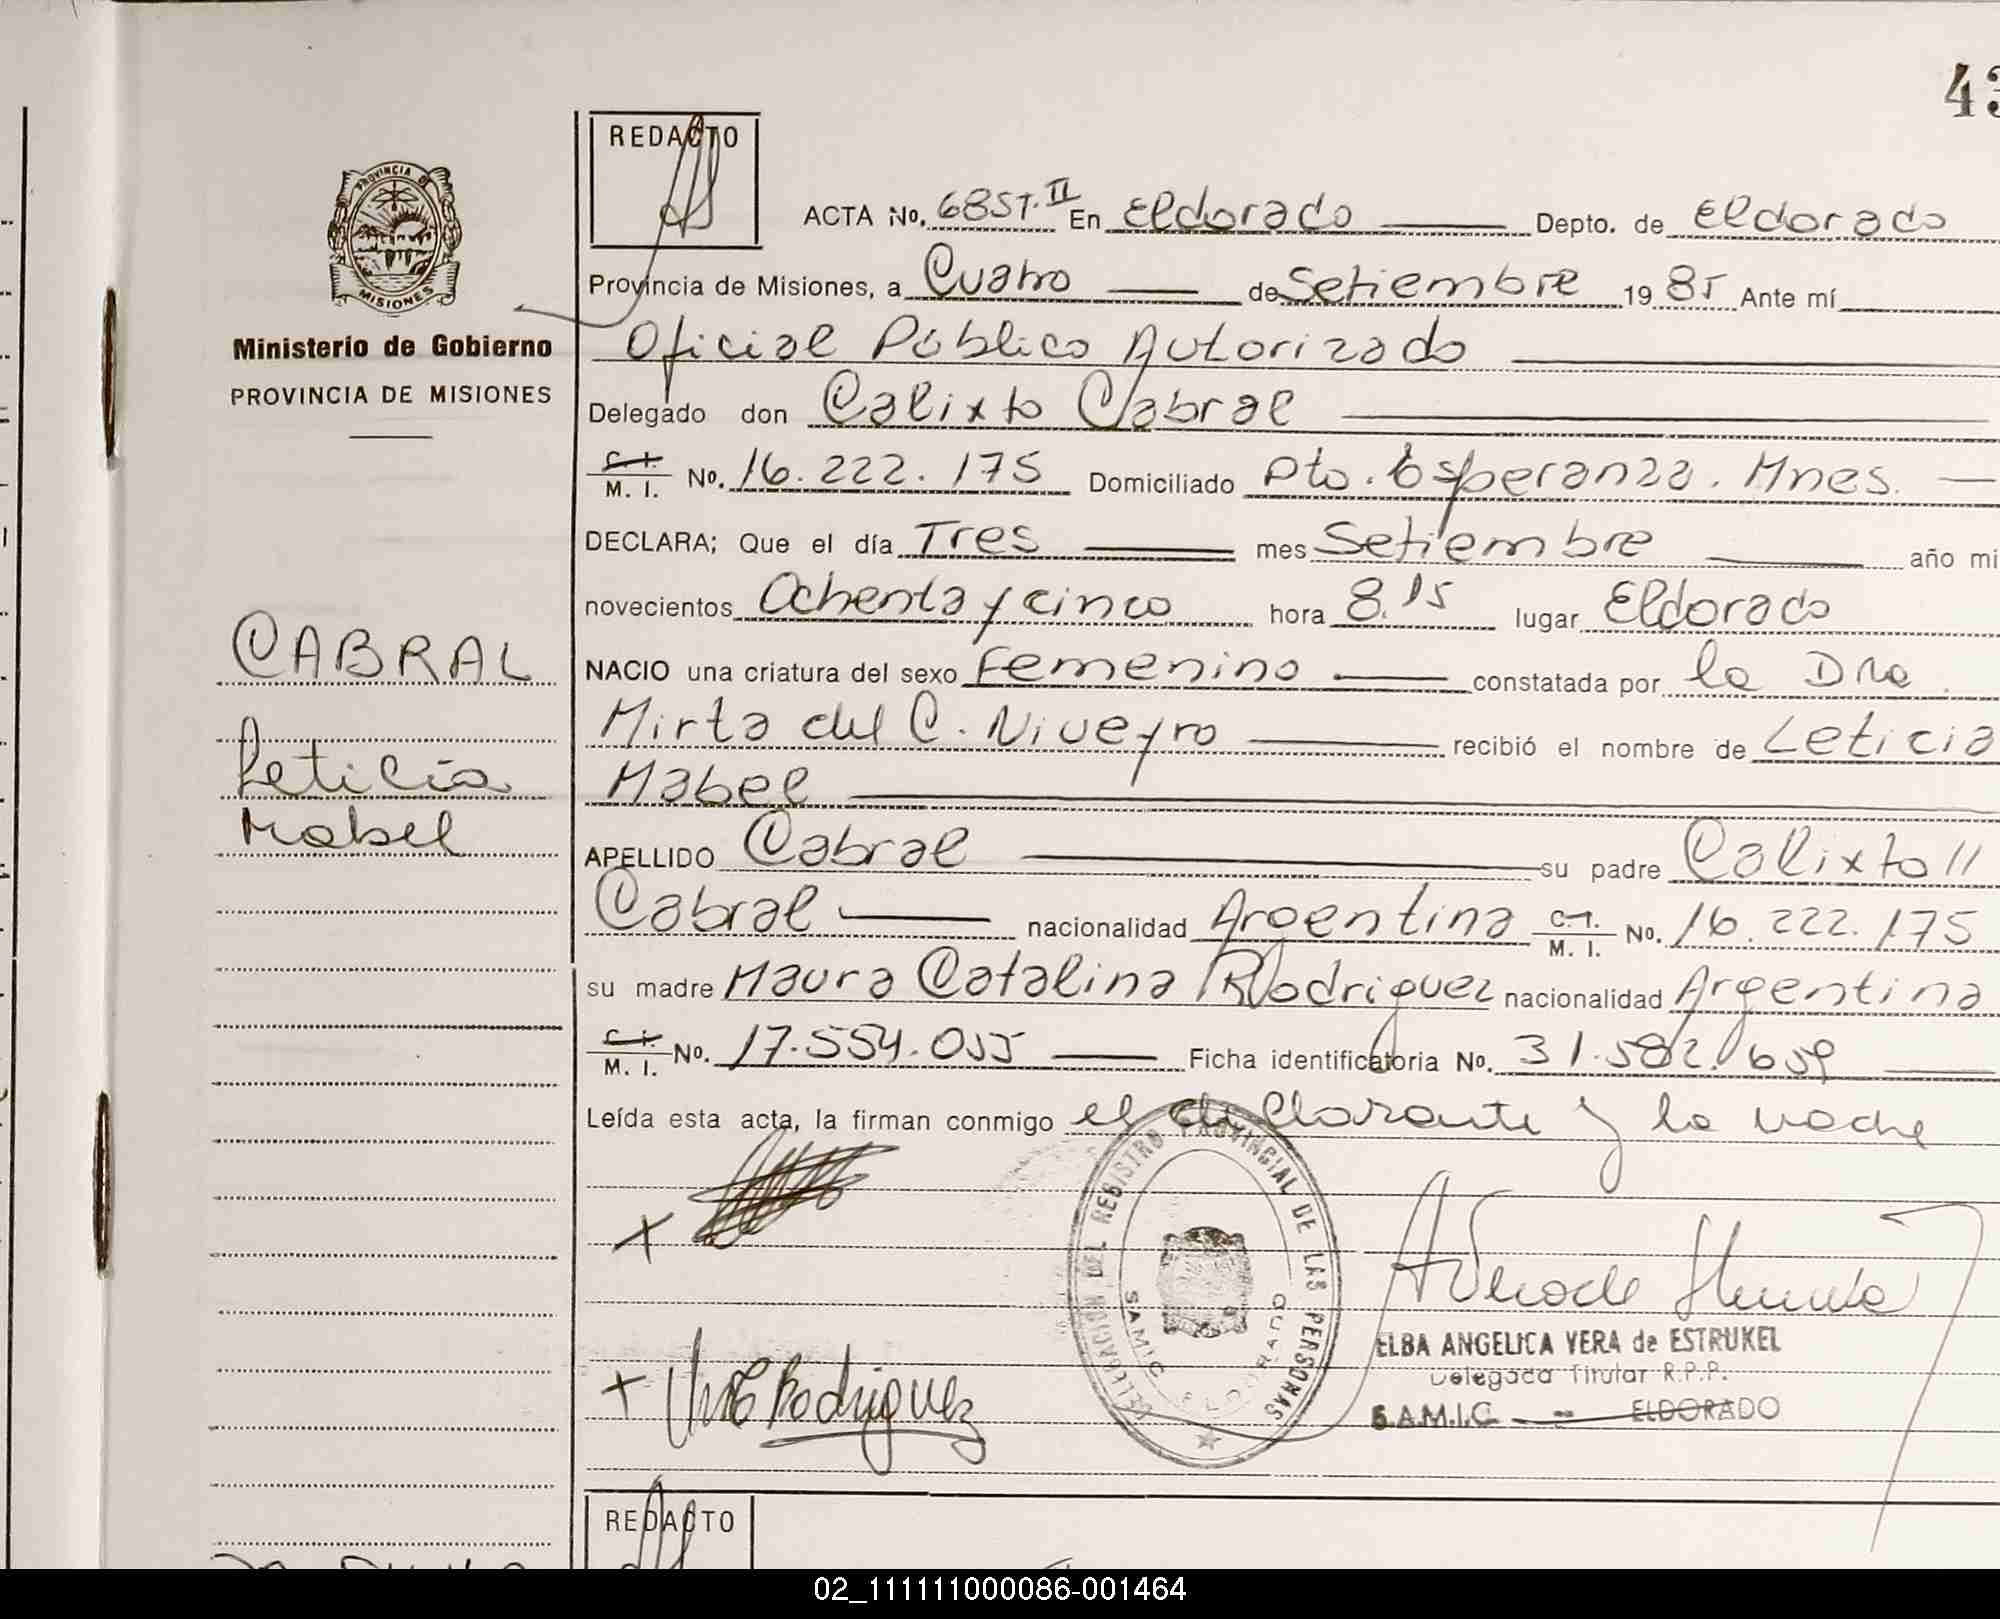 43
REDACTO
ACTA No. 685T.II En Eldorado Depto. de Eldorado
PROVINCIA DE
MISIONES
Provincia de Misiones, a Cuatro de Setiembre 1985 Ante mí
Ministerio de Gobierno
PROVINCIA DE MISIONES
Oficial Público Autorizado
Delegado don Calixto Cabral
C.I. M. I. No. 16.222.175 Domiciliado Pto. Esperanza. Mnes.
DECLARA; Que el día Tres mes Setiembre año mi
novecientos Ochenta y cinco hora 8.15 lugar Eldorado
CABRAL
Leticia
Mabel
NACIO una criatura del sexo Femenino constatada por la Dra.
Mirta del C. Niveyro recibió el nombre de Leticia
Mabel
APELLIDO Cabral su padre Calixto //
Cabral nacionalidad Argentina C.I. M. I. No. 16.222.175
su madre Maura Catalina Rodriguez nacionalidad Argentina
C.I. M. I. No. 17.554.055 Ficha identificatoria No. 31.582.659
Leída esta acta, la firman conmigo el declarante y la madre
DELEGACION DEL REGISTRO PROVINCIAL DE LAS PERSONAS
SAMIC ELDORADO
Rodriguez
ELBA ANGELICA VERA de ESTRUKEL
Delegada Titular R.P.P.
S.A.M.I.C. - ELDORADO
REDACTO
02_111111000086-001464